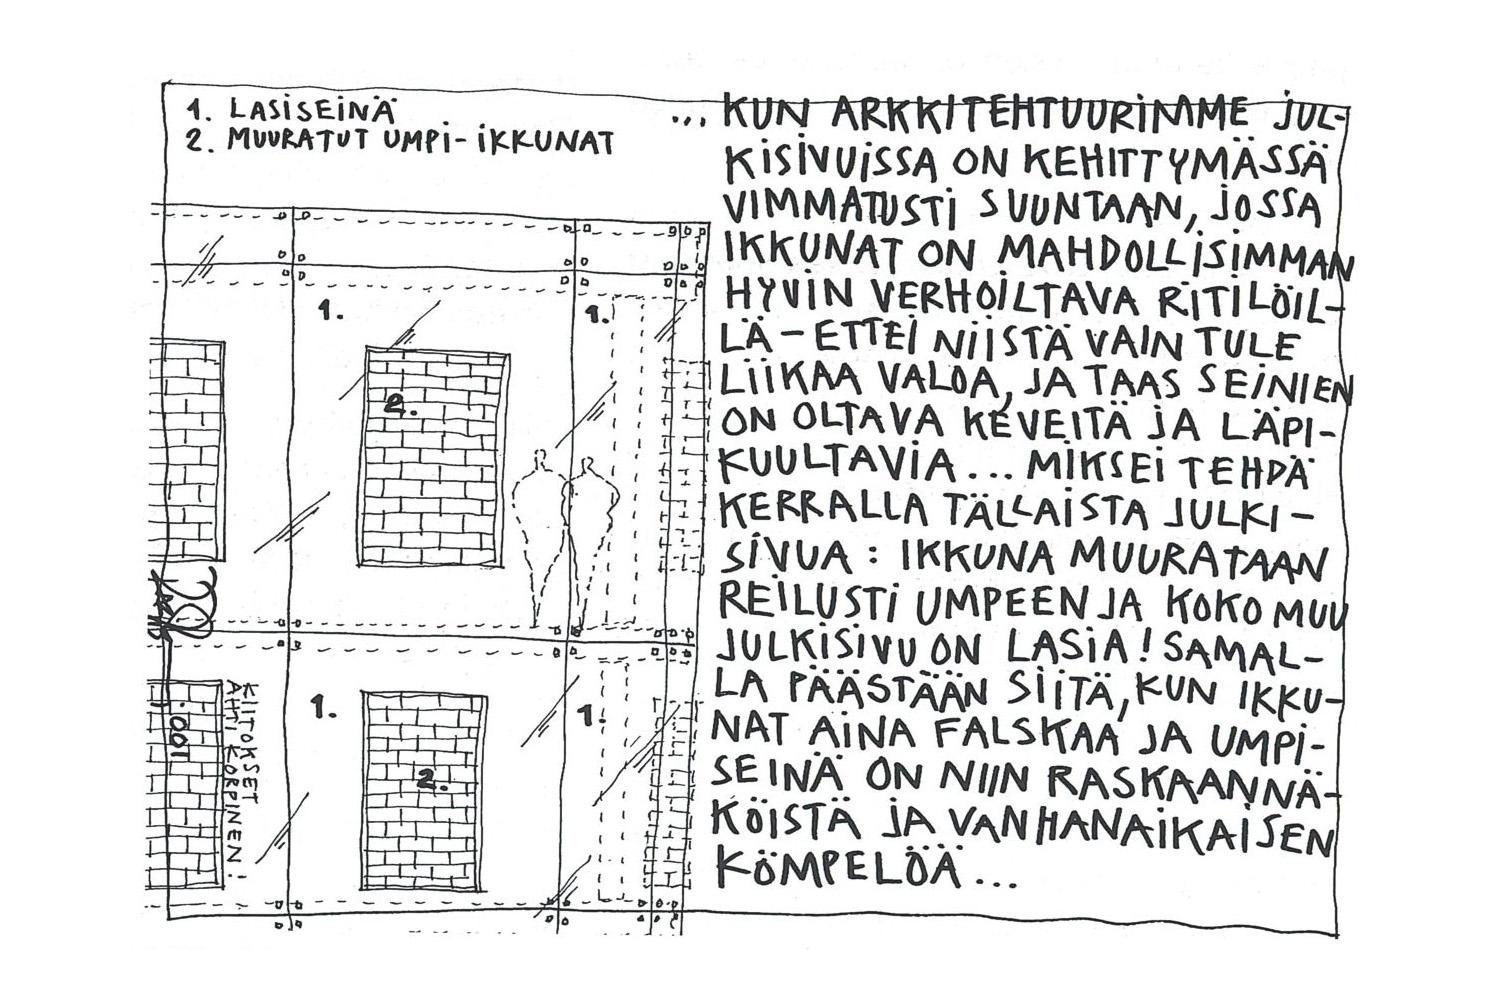 1. LASISEINÄ
2. MUURATUT UMPI-IKKUNAT
... KUN ARKKITEHTUURIMME JUL-
KISIVUISSA ON KEHITTYMÄSSÄ
VIMMATUSTI SUUNTAAN, JOSSA
IKKUNAT ON MAHDOLLISIMMAN
HYVIN VERHOILTAVA RITILÖIL-
LÄ – ETTEI NIISTÄ VAIN TULE
LIIKAA VALOA, JA TAAS SEINIEN
ON OLTAVA KEVEITÄ JA LÄPI-
KUULTAVIA... MIKSEI TEHDÄ
KERRALLA TÄLLAISTA JULKI-
SIVUA : IKKUNA MUURATAAN
REILUSTI UMPEEN JA KOKO MUU
JULKISIVU ON LASIA! SAMAL-
LA PÄÄSTÄÄN SIITÄ, KUN IKKU-
NAT AINA FALSKAA JA UMPI-
SEINÄ ON NIIN RASKAANNÄ-
KÖISTÄ JA VANHANAIKAISEN
KÖMPELÖÄ...
1.
1.
2.
1.
1.
2.
KIITOKSET
AHTI KORPINEN!